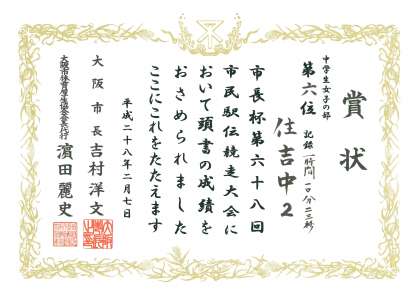 賞状
中学生女子の部
第六位 記録 一時間一〇分二三秒
住吉中2
市長杯第六十八回
市民駅伝競走大会に
おいて頭書の成績を
おさめられました
ここにこれをたたえます
平成二十八年二月七日
大阪市長 吉村洋文
濵田麗史